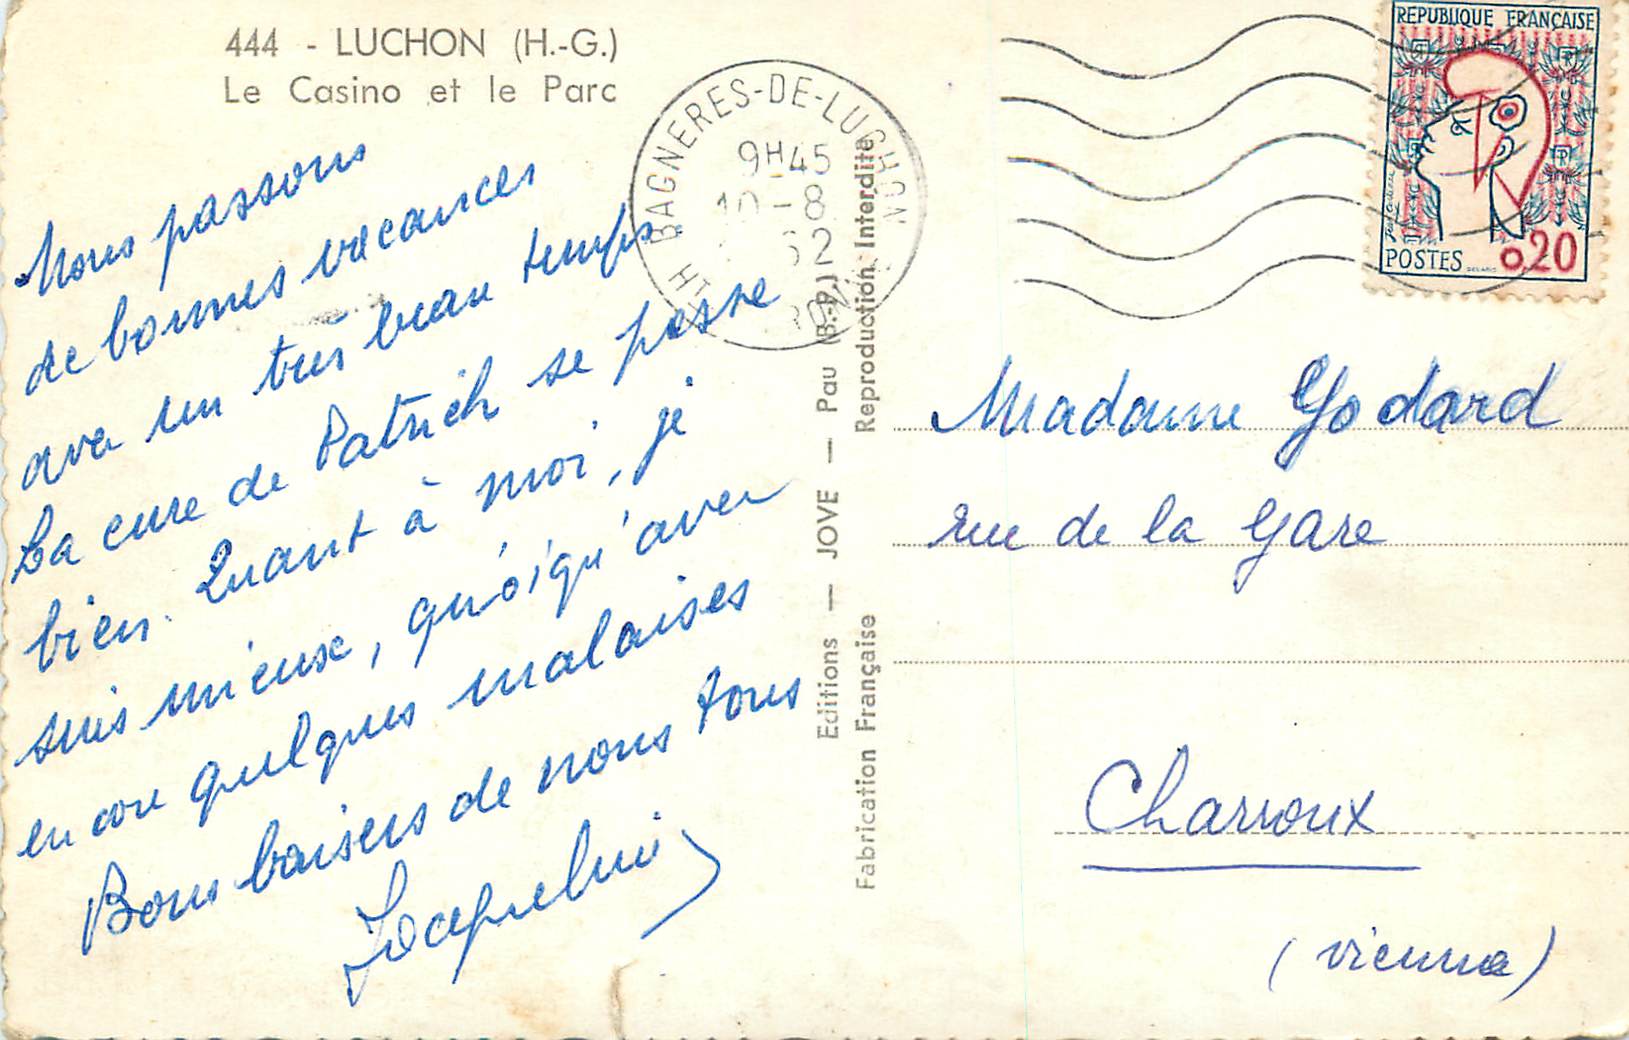 444 - LUCHON (H.-G.)
Le Casino et le Parc
Nous passons
de bonnes vacances
avec un très beau temps.
La cure de Patrick se passe
bien. Quant à moi, je
suis mieux, quoiqu'avec
encore quelques malaises
Bons baisers de nous tous
Jacqueline
BAGNERES-DE-LUCHON
9H45
10-8
62
Editions — JOVE — Pau (B.-P.)
Fabrication Française
Reproduction Interdite
REPUBLIQUE FRANÇAISE
POSTES
0.20
Madame Godard
rue de la Gare
Charroux
(Vienne)